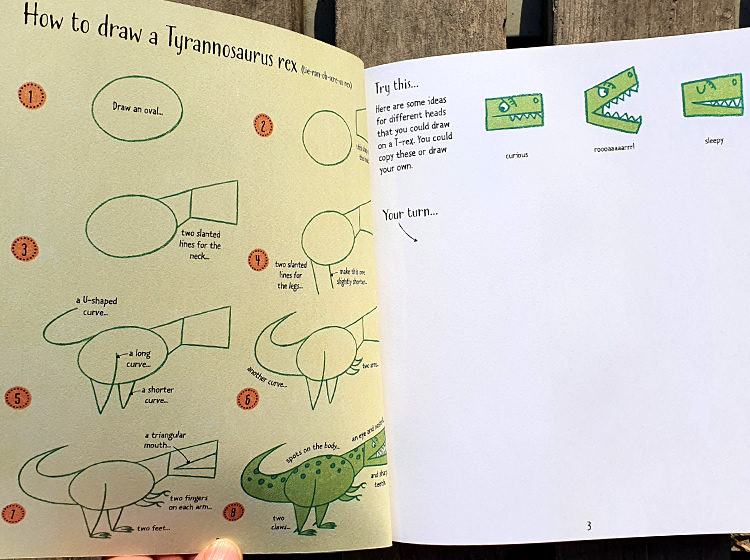 How to draw a Tyrannosaurus rex (tie-ran-oh-sore-us rex)
1
Draw an oval...
2
3
two slanted
lines for the
neck...
4
two slanted
lines for
the legs...
make this one
slightly shorter...
a U-shaped
curve...
a long
curve...
a shorter
curve...
5
another curve...
two arms...
6
a triangular
mouth...
two fingers
on each arm...
two feet...
7
spots on the body...
an eye and
and sharp
teeth
two
claws...
8
Try this...
Here are some ideas
for different heads
that you could draw
on a T-rex. You could
copy these or draw
your own.
curious
roooaaaaarrr!
sleepy
Your turn...
3